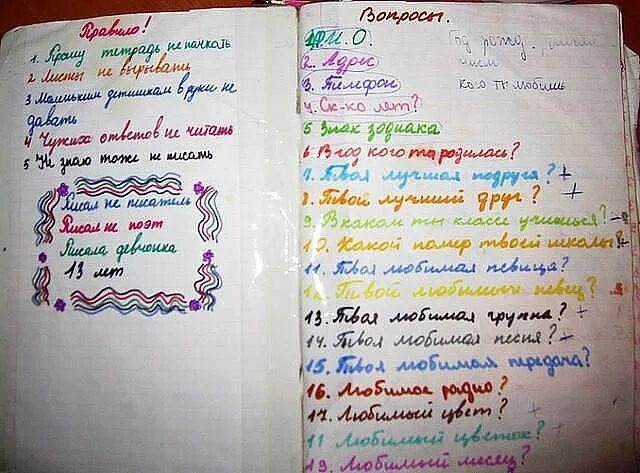 Правило!
1. Прошу тетрадь не пачкать
2 Листы не вырывать
3 Маленьким детишкам в руки не
давать
4 Чужих ответов не читать
5 Не знаю тоже не писать
Писал не писатель
Писал не поэт
Писала девчонка
13 лет
Вопросы.
1 Ф.И.О.
2. Адрес
3. Тилифон
4. Ск-ко лет?
5 Знак зодиака
6 В год кого ты родилась?
7. Твоя лучшая подруга? +
8. Твой лучший друг? +
9. В каком ты классе учишься?
10. Какой номер твоей школы?
11. Твоя любимая певица?
12. Твой любимый певец?
13. Твоя любимая группа? +
14. Твоя любимая песня?
15. Твоя любимая передача?
16. Любимое радио?
17. Любимый цвет? +
11 Любимый цветок? +
19. Любимый месяц?
Год рожд.
кого ты любишь